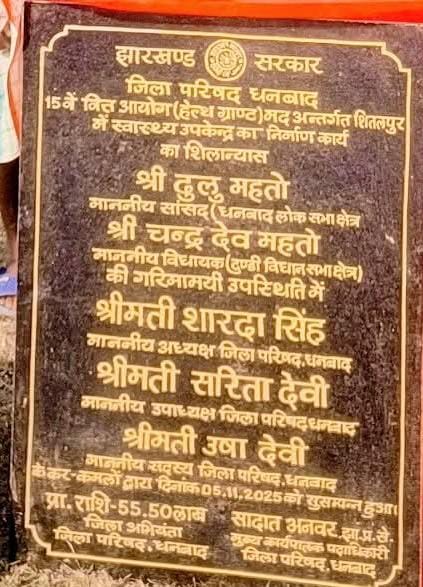 झारखण्ड सरकार
जिला परिषद धनबाद
15वें वित्त आयोग(हेल्थ ग्राण्ट)मद अन्तर्गत शितलपुर
में स्वास्थ्य उपकेन्द्र का निर्माण कार्य
का शिलान्यास
श्री दुलु महतो
माननीय सांसद (धनबाद लोक सभा क्षेत्र
श्री चन्द्र देव महतो
माननीय विधायक(टुण्डी विधान सभा क्षेत्र)
की गरिमामयी उपस्थिति में
श्रीमती शारदा सिंह
माननीय अध्यक्ष जिला परिषद, धनबाद
श्रीमती सरिता देवी
माननीय उपाध्यक्ष जिला परिषद धनबाद
श्रीमती उषा देवी
माननीय सदस्य जिला परिषद, धनबाद
के कर-कमलों द्वारा दिनांक 05.11.2025 को सुसम्पन्न हुआ।
प्रा. राशि-55.50लाख
जिला अभियंता
जिला परिषद, धनबाद
सादात अनवर, झा.प्र.से.
मुख्य कार्यपालक पदाधिकारी
जिला परिषद, धनबाद